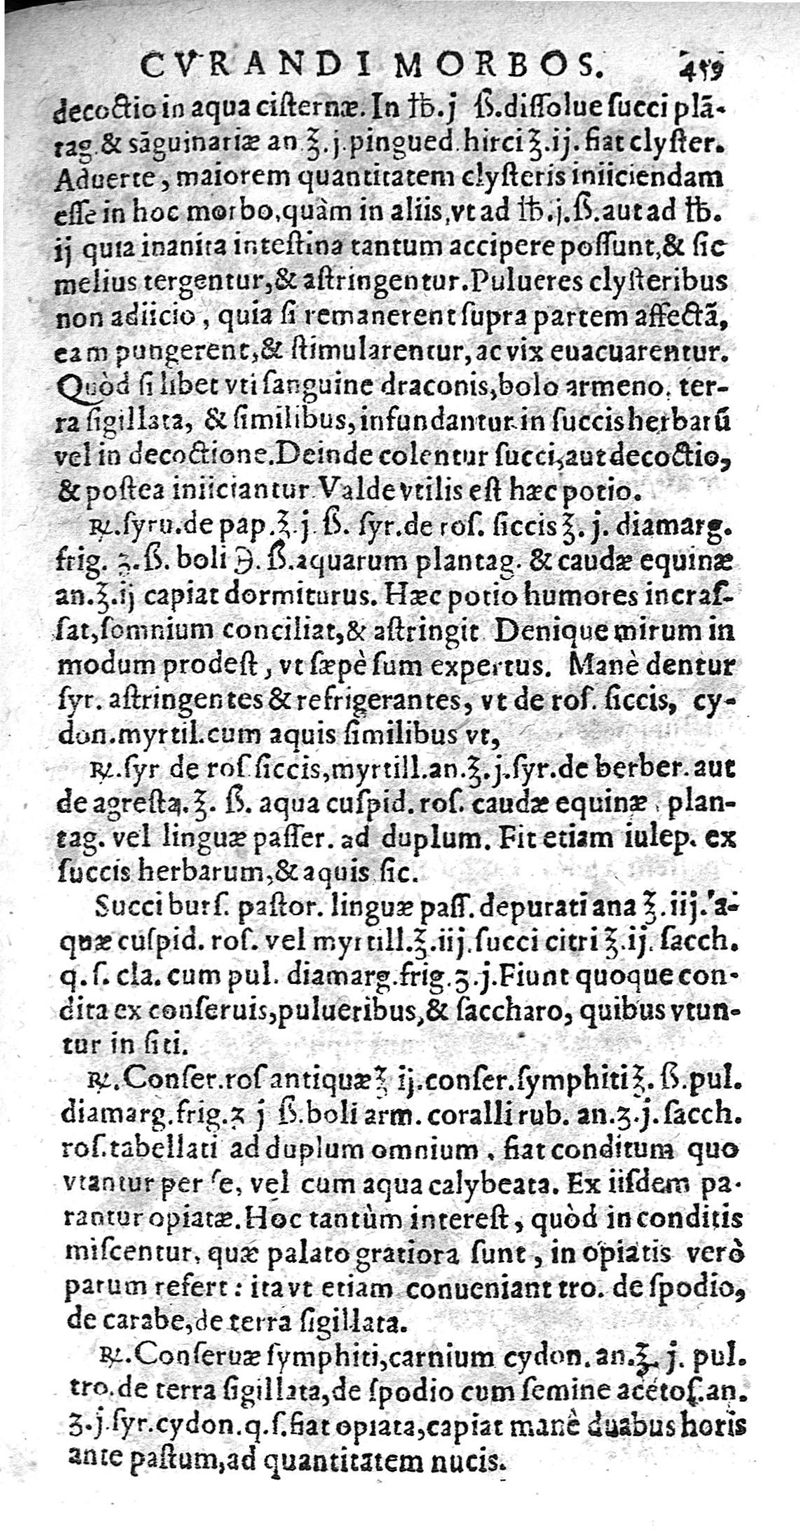 CVRANDI MORBOS. 459
decoctio in aqua cisternæ. In ℔.j ß.dissolue succi plã-
tag.& sãguinariæ an ℥.j.pingued.hirci ℥.ij.fiat clyster.
Aduerte, maiorem quantitatem clysteris iniiciendam
esse in hoc morbo,quàm in aliis,vt ad ℔.j.ß.aut ad ℔.
ij quia inanita intestina tantum accipere possunt,& sic
melius tergentur,& astringentur.Pulueres clysteribus
non adiicio, quia si remanerent supra partem affectã,
eam pungerent,& stimularentur, ac vix euacuarentur.
Quòd si libet vti sanguine draconis,bolo armeno, ter-
ra sigillata, & similibus, infundantur in succis herbarũ
vel in decoctione.Deinde colentur succi,aut decoctio,
& postea iniiciantur.Valde vtilis est hæc potio.
℞.syru.de pap.℥.j.ß. syr.de ros. siccis ℥. j. diamarg.
frig. ʒ.ß. boli ℈. ß.aquarum plantag. & caudæ equinæ
an.℥.ij capiat dormiturus. Hæc potio humores incras-
sat,somnium conciliat,& astringit Denique mirum in
modum prodest, vt sæpè sum expertus. Manè dentur
syr. astringentes & refrigerantes, vt de ros. siccis, cy-
don.myrtil.cum aquis similibus vt,
℞.syr de ros siccis,myrtill.an.℥.j.syr.de berber.aut
de agresta.℥. ß. aqua cuspid. ros. caudæ equinæ, plan-
tag. vel linguæ passer. ad duplum. Fit etiam iulep. ex
succis herbarum,& aquis sic.
Succi burs. pastor. linguæ pass. depurati ana ℥.iij. a-
quæ cuspid. ros. vel myrtill.℥.iij.succi citri ℥.ij. sacch.
q. s. cla. cum pul. diamarg.frig.ʒ.j.Fiunt quoque con-
dita ex conseruis,pulueribus,& saccharo, quibus vtun-
tur in siti.
℞.Conser.ros antiquæ ℥ ij.conser.symphiti ℥. ß.pul.
diamarg.frig.ʒ j ß.boli arm. coralli rub. an.ʒ.j. sacch.
ros.tabellati ad duplum omnium, fiat conditum quo
vtantur per se, vel cum aqua calybeata. Ex iisdem pa-
rantur opiatæ.Hoc tantùm interest, quòd in conditis
miscentur, quæ palato gratiora sunt, in opiatis verò
parum refert: ita vt etiam conueniant tro. de spodio,
de carabe,de terra sigillata.
℞.Conseruæ symphiti,carnium cydon.an.℥. j. pul.
tro.de terra sigillata,de spodio cum semine acetos.an.
ʒ.j.syr.cydon.q.s.fiat opiata,capiat manè duabus horis
ante pastum,ad quantitatem nucis.